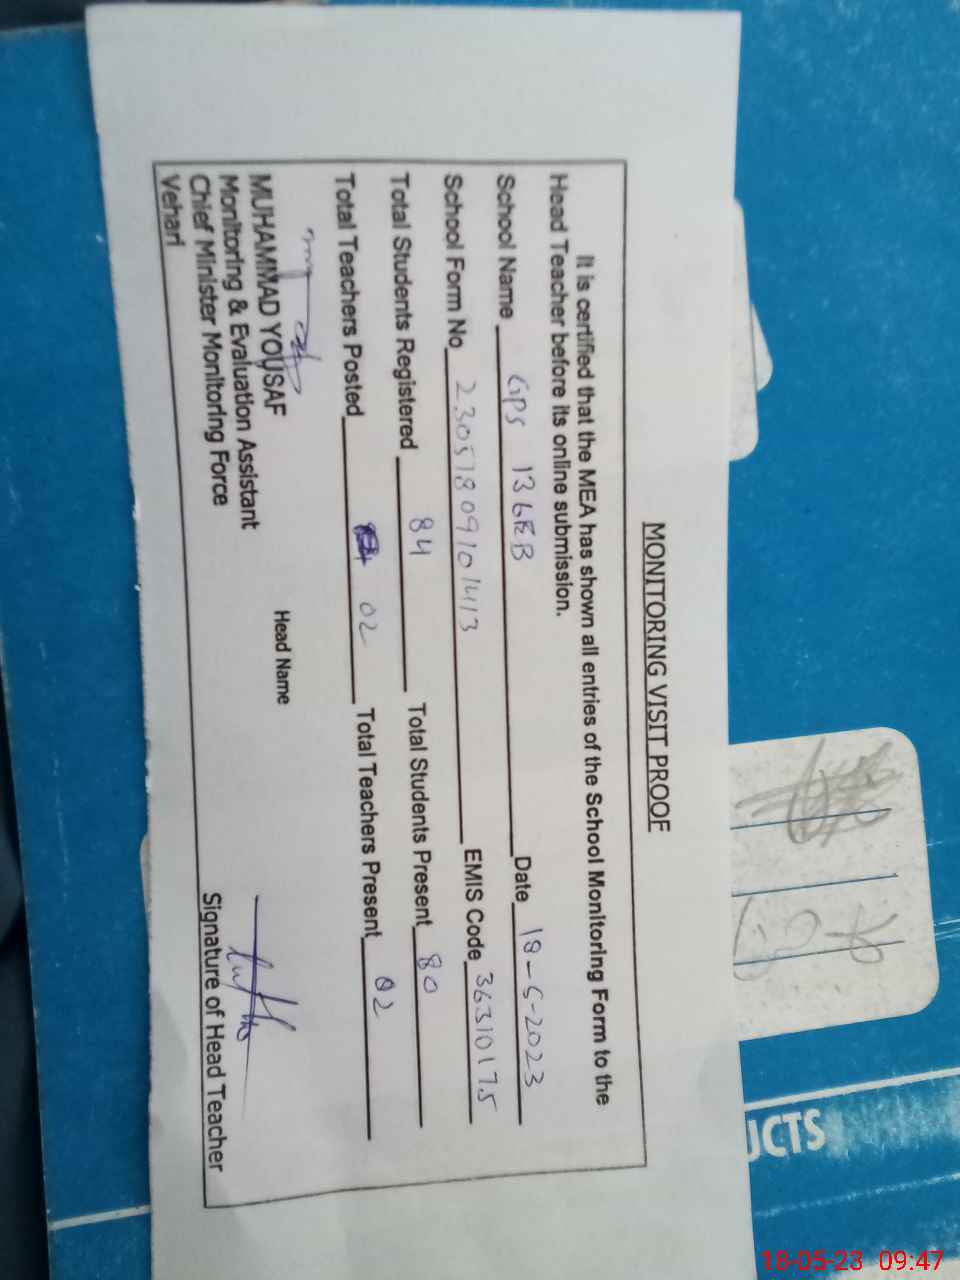 MONITORING VISIT PROOF
It is certified that the MEA has shown all entries of the School Monitoring Form to the
Head Teacher before its online submission.
School Name GPS 136EB Date 18-5-2023
School Form No 23051809101413 EMIS Code 36310175
Total Students Registered 84 Total Students Present 80
Total Teachers Posted 02 Total Teachers Present 02
Head Name
MUHAMMAD YOUSAF
Monitoring & Evaluation Assistant
Chief Minister Monitoring Force
Vehari
Signature of Head Teacher
UCTS
18-05-23 09:47